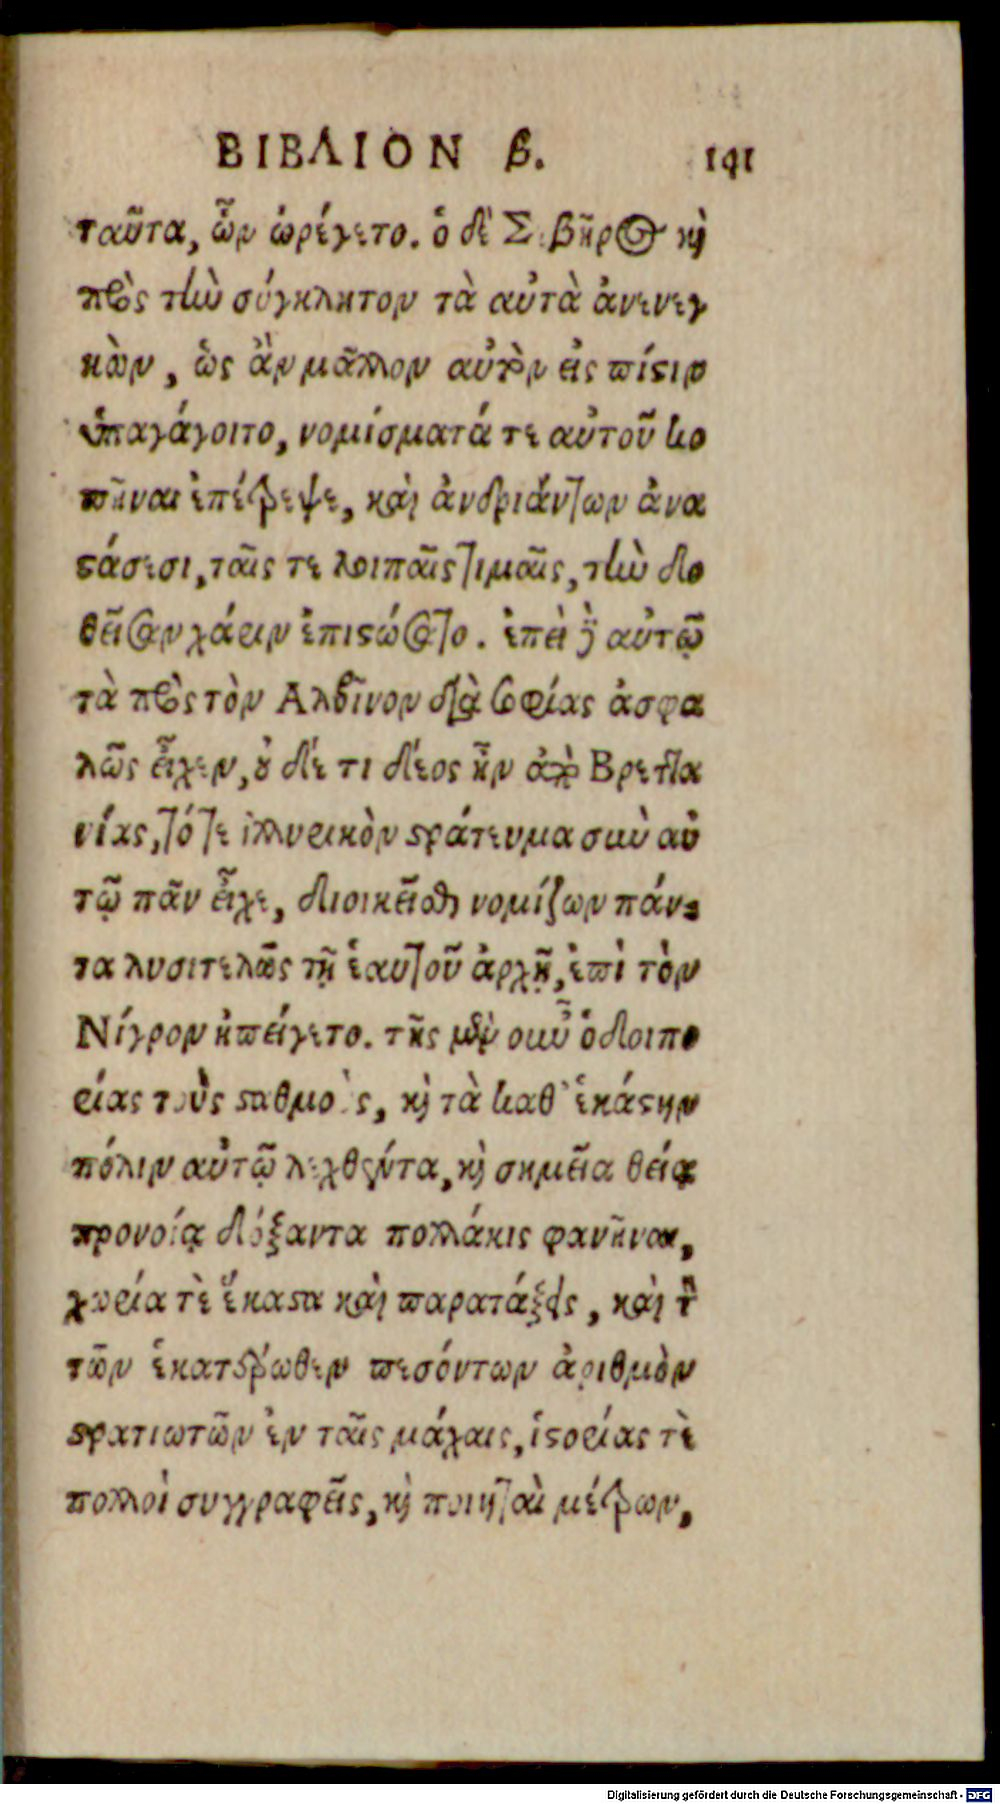 ΒΙΒΛΙΟΝ β. 141
ταῦτα, ὧν ὠρέγετο. ὁ δὲ Σεβῆρος καὶ
πρὸς τὴν σύγκλητον τὰ αὐτὰ ἀνενεγ
κὼν, ὡς ἂν μᾶλλον αὐτὸν εἰς πίστιν
ὑπαγάγοιτο, νομίσματά τε αὐτοῦ κο
πῆναι ἐπέτρεψε, καὶ ἀνδριάντων ἀνα
στάσεσι, ταῖς τε λοιπαῖς τιμαῖς, τὴν δο
θεῖσαν χάριν ἐπιστώσατο. ἐπεὶ δὲ αὐτῷ
τὰ πρὸς τὸν Αλβῖνον διὰ σοφίας ἀσφα
λῶς εἶχεν, οὐ δέ τι δέος ἦν ἀπὸ Βρεττα
νίας, τό τε ἰλλυρικὸν στράτευμα σὺν αὐ
τῷ πᾶν εἶχε, διοικεῖσθαι νομίζων πάν-
τα λυσιτελῶς τῇ ἑαυτοῦ ἀρχῇ, ἐπὶ τὸν
Νίγρον ἠπείγετο. τῆς μὲν οὖν ὁδοιπο
ρίας τοὺς σταθμοὺς, καὶ τὰ καθ᾽ ἑκάστην
πόλιν αὐτῷ λεχθέντα, καὶ σημεῖα θείᾳ
προνοίᾳ δόξαντα πολλάκις φανῆναι,
χωρία τὲ ἕκαστα καὶ παρατάξεις, καὶ τὸν
τῶν ἑκατέρωθεν πεσόντων ἀριθμὸν
στρατιωτῶν ἐν ταῖς μάχαις, ἱστορίας τὲ
πολλοὶ συγγραφεῖς, καὶ ποιηταὶ μέτρων,
Digitalisierung gefördert durch die Deutsche Forschungsgemeinschaft - DFG